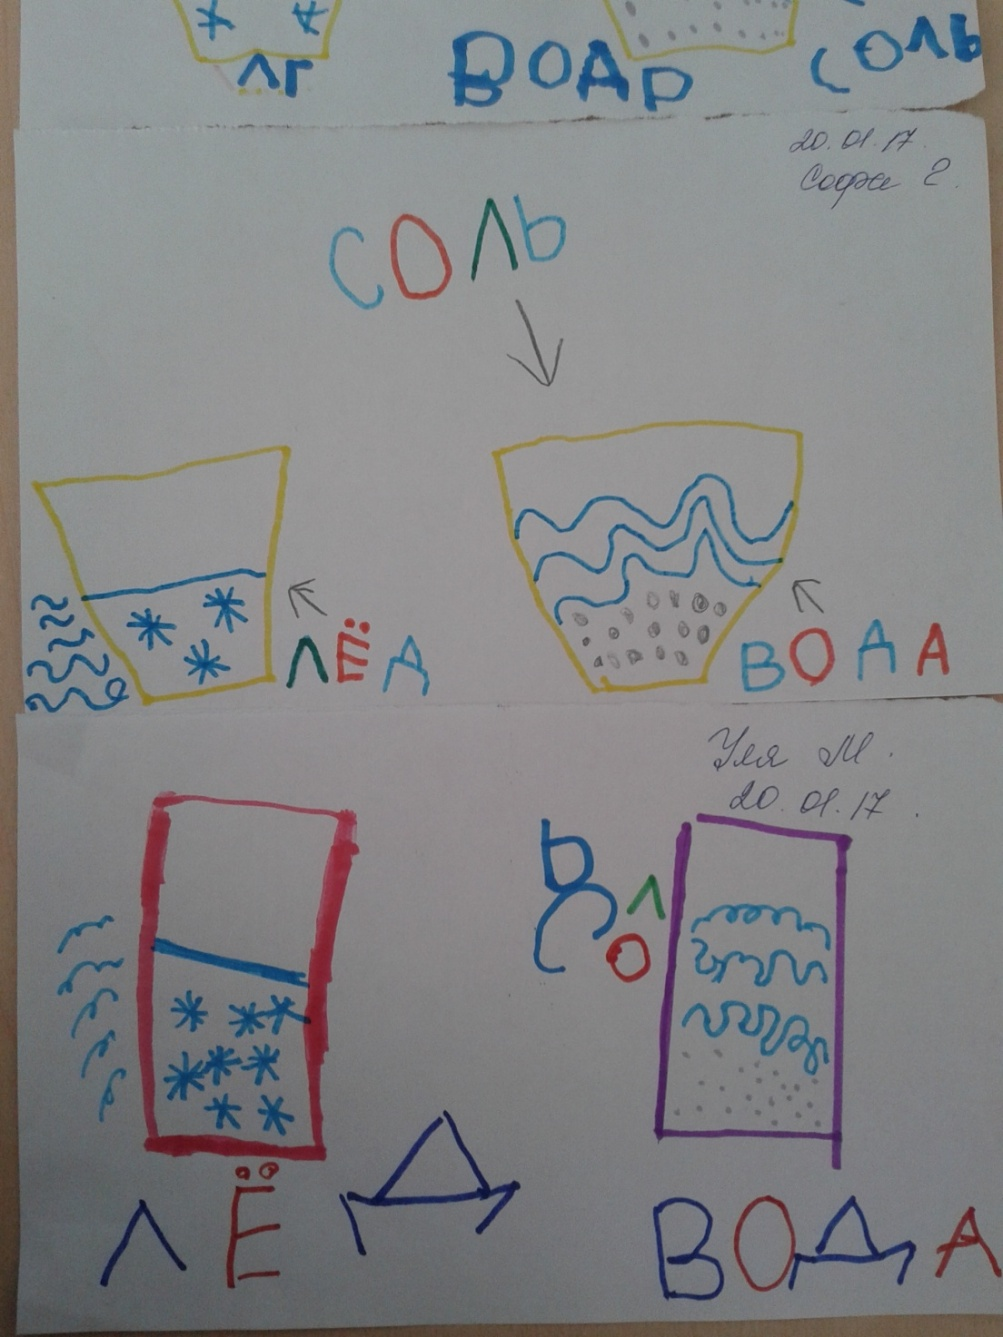 ЛГ ВОДР СОЛЬ
20.01.17.
Софи Г.
СОЛЬ
ЛЁД ВОДА
Уля М.
20.01.17.
СОЛЬ
ЛЁД ВОДА